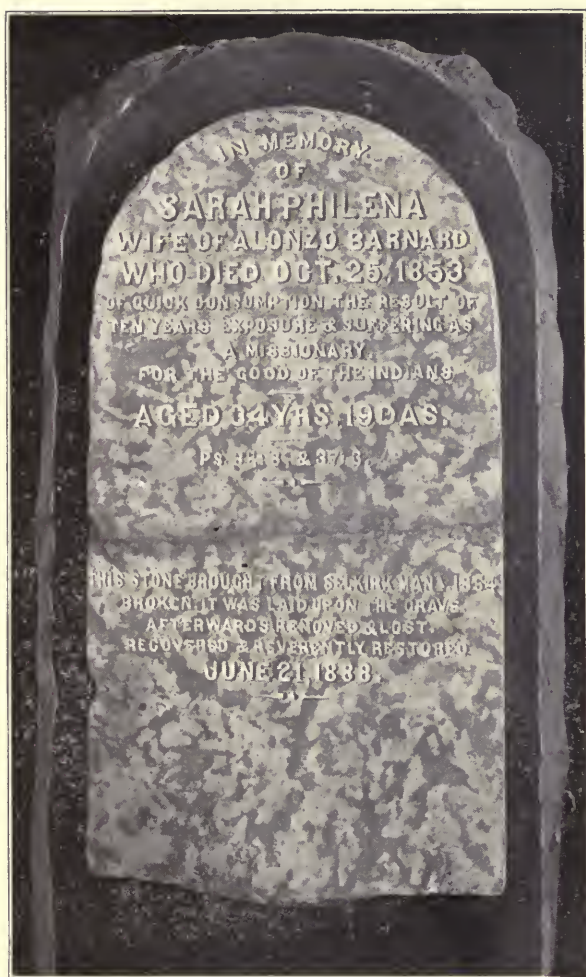 IN MEMORY
OF
SARAH PHILENA
WIFE OF ALONZO BARNARD
WHO DIED OCT. 25. 1853
OF QUICK CONSUMPTION THE RESULT OF
TEN YEARS EXPOSURE & SUFFERING AS
A MISSIONARY.
FOR THE GOOD OF THE INDIANS
AGED 34 YRS. 19 DAS.
Ps. &
THIS STONE BROUGHT FROM SELKIRK MAN. 1854
BROKEN. IT WAS LAID UPON THE GRAVE.
AFTERWARDS REMOVED & LOST.
RECOVERED & REVERENTLY RESTORED
JUNE 21, 1888.